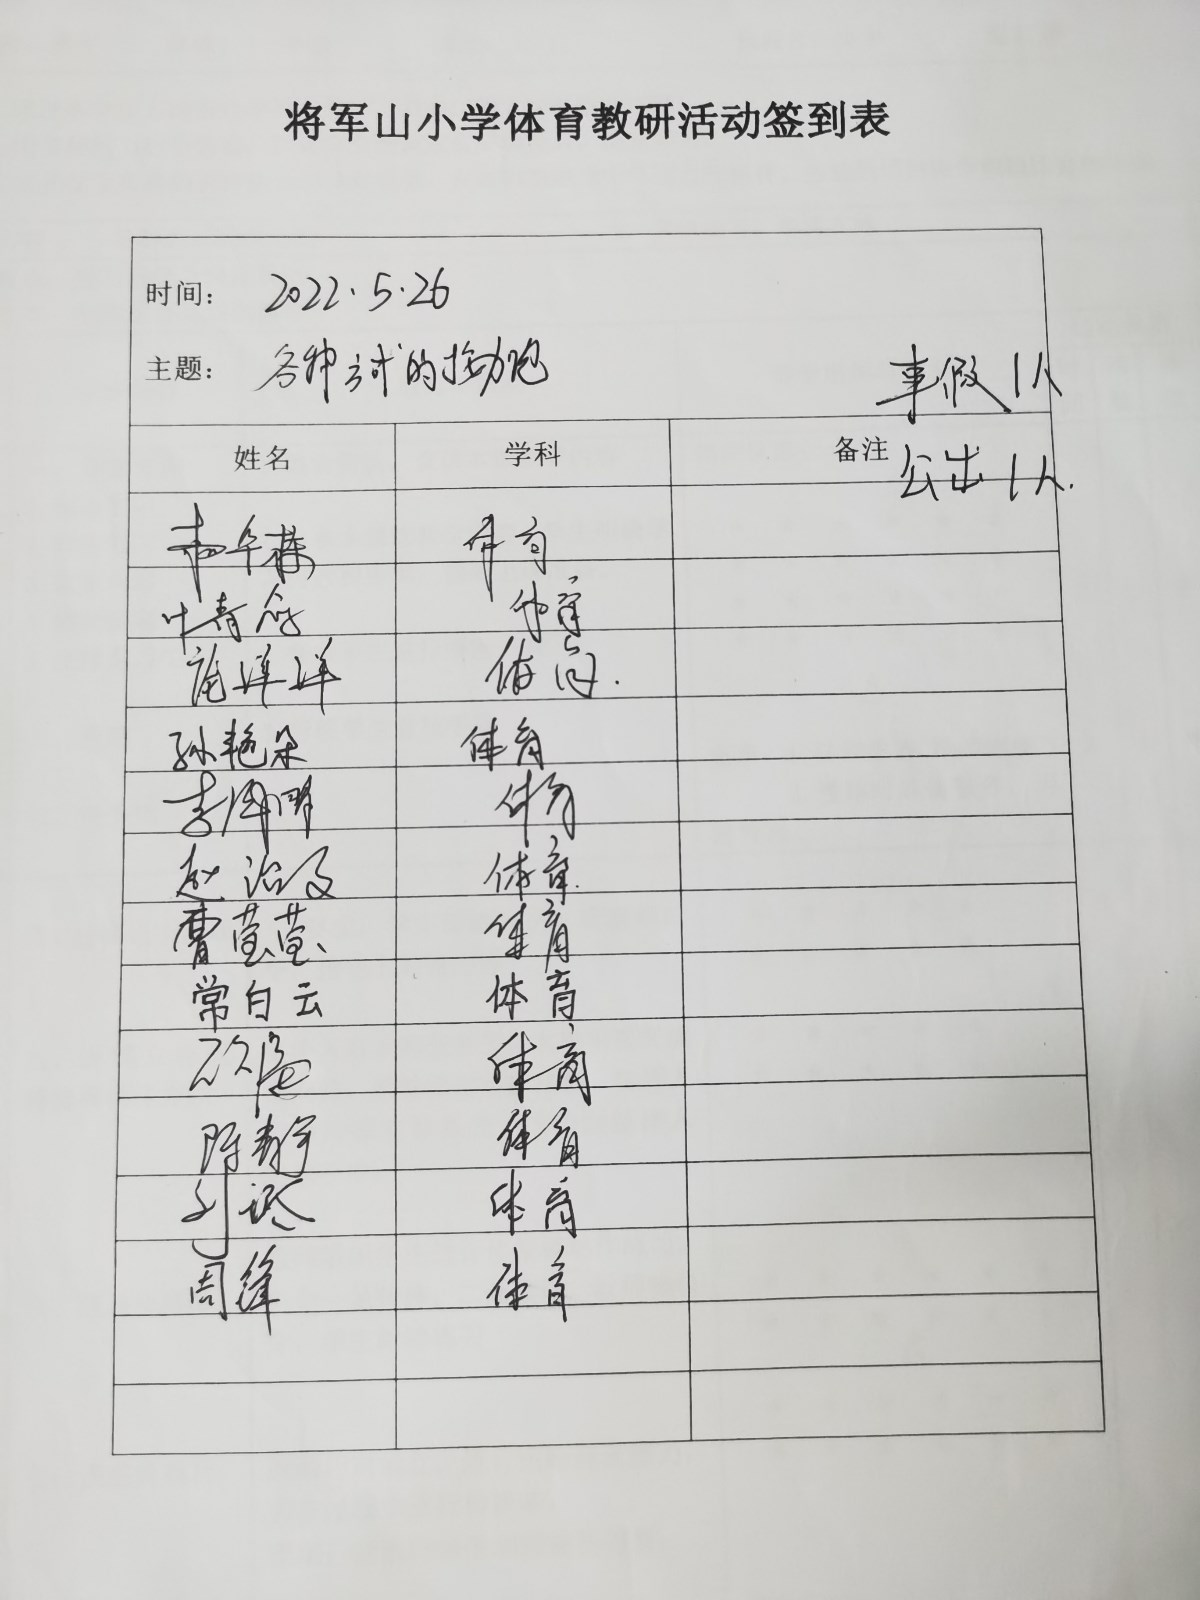 将军山小学体育教研活动签到表
时间： 2022.5.26
主题： 各种方式的接力跑
事假1人
姓名 学科 备注
公出1人.
体育
叶青 体育
洋洋 体育.
孙艳朵 体育
李 明 体育
赵治 体育.
曹莹莹 体育
常白云 体育
体育
陈静宇 体育
刘 体育
周锋 体育